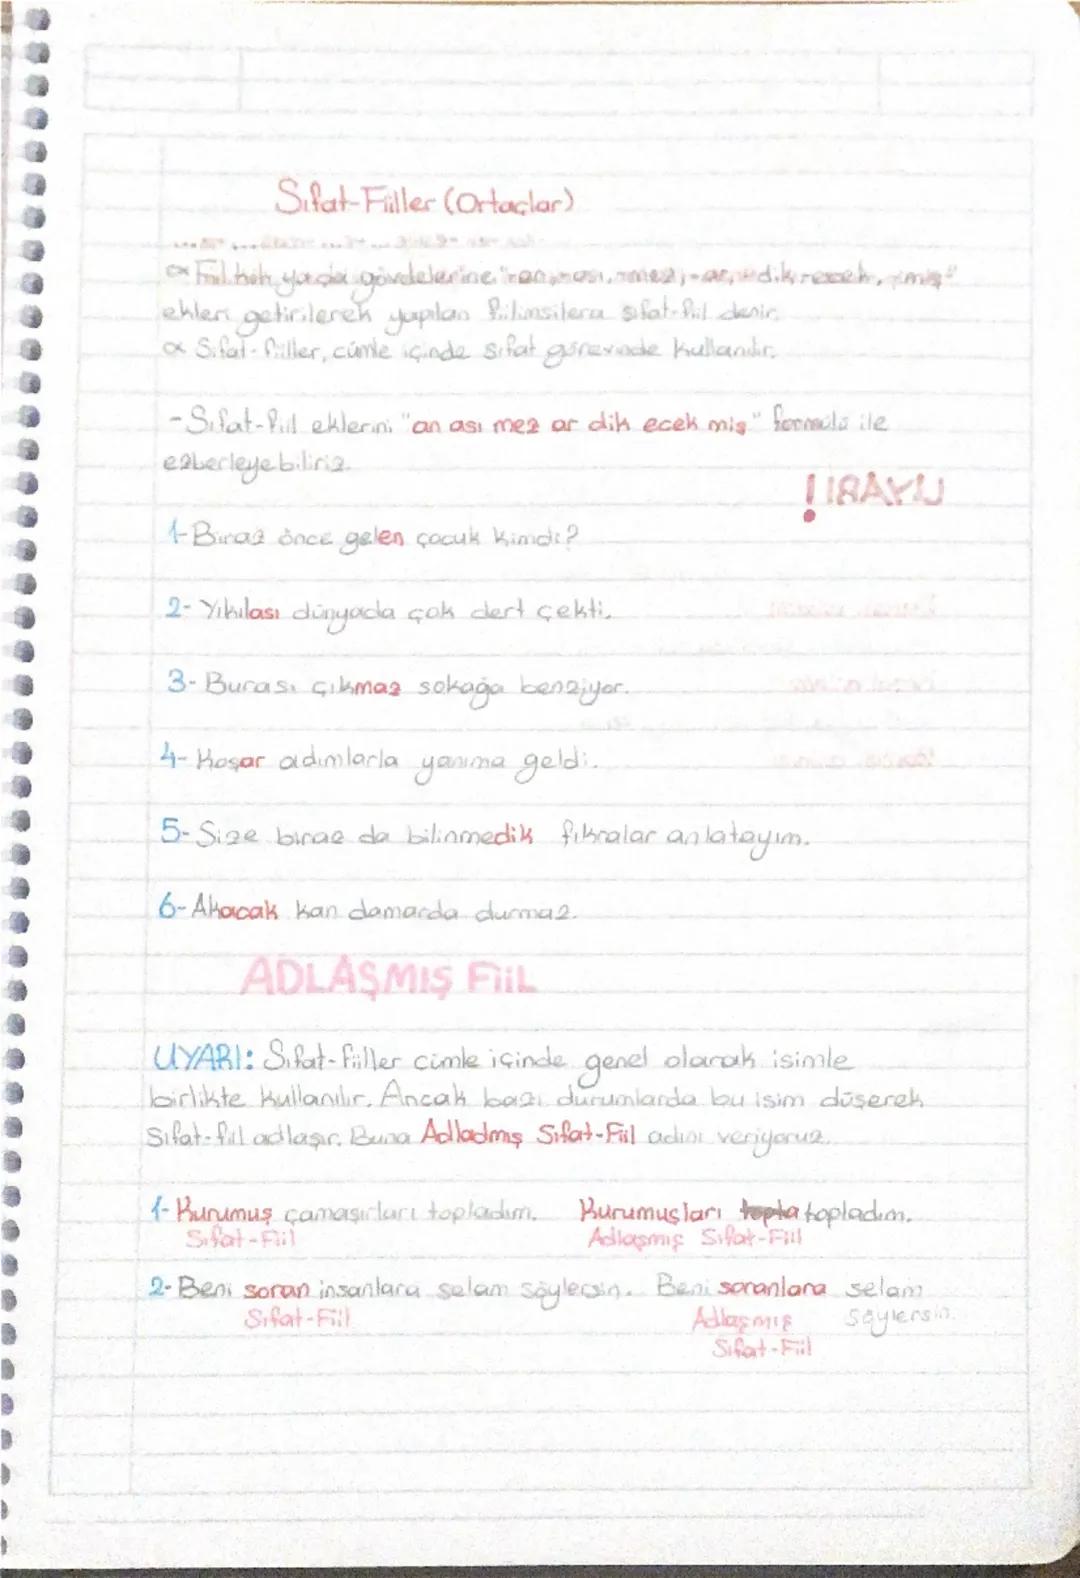 Sıfat-Fiiller (Ortaçlar)
∝ Fiil kök ya da gövdelerine "-an, -ası, -mez, -ar, -dik, -ecek, -miş"
ekleri getirilerek yapılan fiilimsilera sıfat-fiil denir.
∝ Sıfat-fiiller, cümle içinde sıfat görevinde kullanılır.
-Sıfat-fiil eklerini "an ası mez ar dik ecek miş" formülü ile
ezberleyebiliriz.
1-Biraz önce gelen çocuk kimdi?
2- Yıkılası dünyada çok dert çekti.
3- Burası çıkmaz sokağa benziyor.
4- Koşar adımlarla yanıma geldi.
5- Size biraz da bilinmedik fıkralar anlatayım.
6- Akacak kan damarda durmaz.
ADLAŞMIŞ FİİL
UYARI: Sıfat-fiiller cümle içinde genel olarak isimle
birlikte kullanılır. Ancak bazı durumlarda bu isim düşerek
sıfat-fiil adlaşır. Buna Adladmış Sıfat-Fiil adını veriyoruz.
1- Kurumuş çamaşırları topladım. Kurumuşları topla topladım.
Sıfat-Fiil Adlaşmış Sıfat-Fiil
2- Beni soran insanlara selam söylersin. Beni soranlara selam
Sıfat-Fiil Adlaşmış söylersin.
Sıfat-Fiil